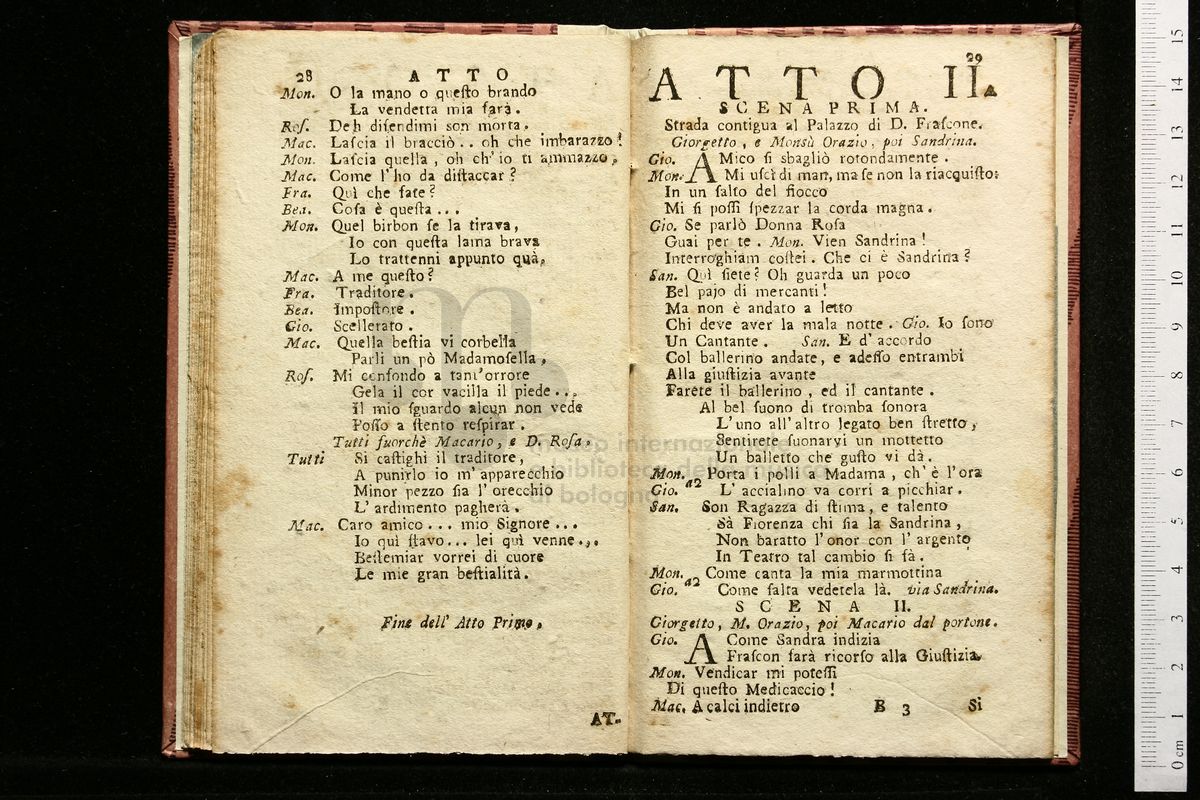 28 ATTO
Mon. O la mano o queſto brando
La vendetta mia farà.
Roſ. Deh difendimi son morta.
Mac. Laſcia il bracciò.. oh che imbarazzo!
Mon. Laſcia quella, oh ch'io ti ammazzo,
Mac. Come l'ho da diſtaccar?
Fra. Quì che fate?
Bea. Coſa è queſta...
Mon. Quel birbon ſe la tirava,
Io con queſta lama brava
Lo trattenni appunto quà,
Mac. A me queſto?
Fra. Traditore.
Bea. Impoſtore.
Gio. Scellerato.
Mac. Quella beſtia vi corbella
Parli un pò Madamoſella,
Roſ. Mi confondo a tant'orrore
Gela il cor vacilla il piede...
Il mio ſguardo alcun non vede
Poſſo a ſtento reſpirar.
Tutti fuorchè Macario, e D. Roſa,
Tutti Si caſtighi il traditore,
A punirlo io m'apparecchio
Minor pezzo ſia l'orecchio
L'ardimento pagherà.
Mac. Caro amico... mio Signore...
Io quì ſtavo... lei quì venne...
Beſtemiar vorrei di cuore
Le mie gran beſtialità.
Fine dell' Atto Primo,
AT-
29
ATTO II.
SCENA PRIMA.
Strada contigua al Palazzo di D. Fraſcone.
Giorgetto, e Monsù Orazio, poi Sandrina.
Gio. AMico ſi sbagliò rotondamente.
Mon. Mi uſcì di man, ma ſe non la riacquiſto:
In un ſalto del fiocco
Mi ſi poſſi ſpezzar la corda magna.
Gio. Se parlò Donna Roſa
Guai per te. Mon. Vien Sandrina!
Interroghiam coſtei. Che ci è Sandrina?
San. Quì ſiete? Oh guarda un poco
Bel pajo di mercanti!
Ma non è andato a letto
Chi deve aver la mala notte. Gio. Io ſono
Un Cantante. San. E d'accordo
Col ballerino andate, e adeſſo entrambi
Alla giuſtizia avante
Farete il ballerino, ed il cantante.
Al bel ſuono di tromba ſonora
L'uno all'altro legato ben ſtretto,
Sentirete ſuonarvi un mottetto
Un balletto che guſto vi dà.
Mon. a2 Porta i polli a Madama, ch'è l'ora
Gio. L'accialino va corri a picchiar.
San. Son Ragazza di ſtima, e talento
Sà Fiorenza chi ſia la Sandrina,
Non baratto l'onor con l'argento
In Teatro tal cambio ſi fà.
Mon. a2 Come canta la mia marmottina
Gio. Come ſalta vedetela là. via Sandrina.
SCENA II.
Giorgetto, M. Orazio, poi Macario dal portone.
Gio. A Come Sandra indizia
Fraſcon farà ricorſo alla Giuſtizia,
Mon. Vendicar mi poteſſi
Di queſto Medicaccio!
Mac. A calci indietro B 3 Si
museo internazionale
biblioteca della musica
di bologna
0 cm 1 2 3 4 5 6 7 8 9 10 11 12 13 14 15